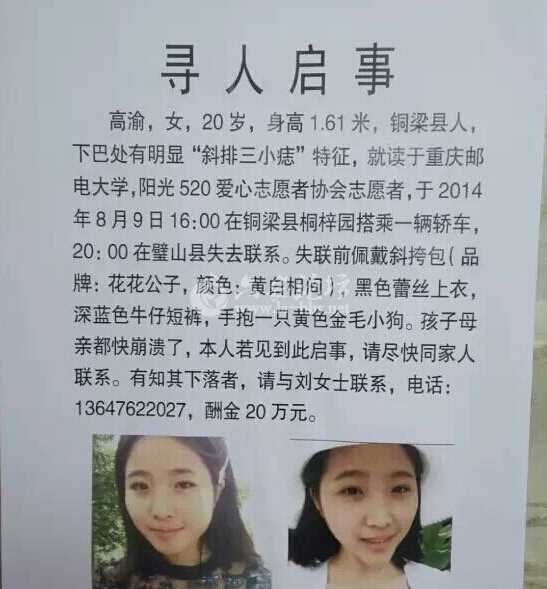 寻人启事
高渝，女，20岁，身高1.61米，铜梁县人，
下巴处有明显“斜排三小痣”特征，就读于重庆邮
电大学，阳光520爱心志愿者协会志愿者，于2014
年8月9日16:00在铜梁县桐梓园搭乘一辆轿车，
20：00在璧山县失去联系。失联前佩戴斜挎包（品
牌：花花公子，颜色：黄白相间），黑色蕾丝上衣，
深蓝色牛仔短裤，手抱一只黄色金毛小狗。孩子母
亲都快崩溃了，本人若见到此启事，请尽快同家人
联系。有知其下落者，请与刘女士联系，电话：
13647622027，酬金20万元。